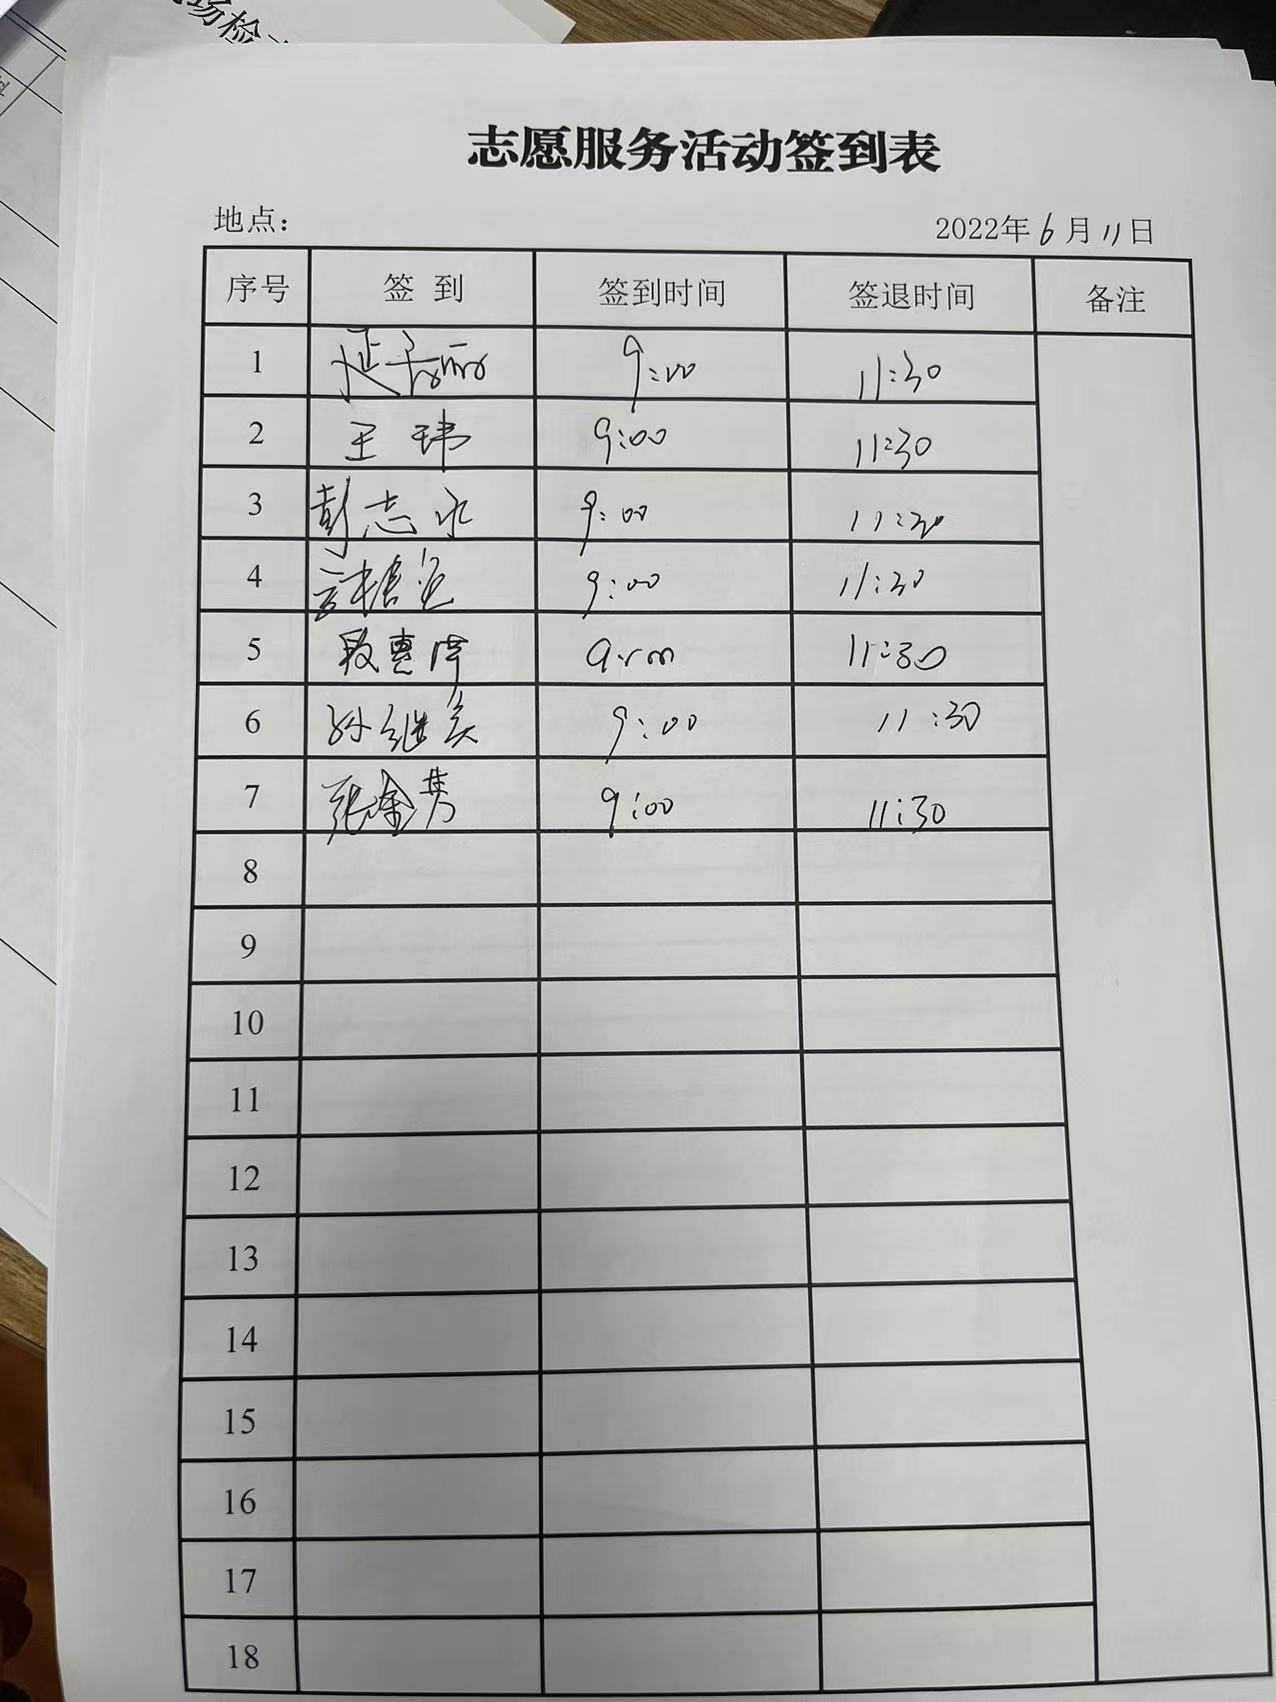 志愿服务活动签到表
地点：
2022年6月11日
序号 签 到 签到时间 签退时间 备注
1 9:00 11:30
2 王玮 9:00 11:30
3 彭志永 9:00 11:30
4 9:00 11:30
5 段惠 11:30
6 孙继 9:00 11:30
7 张金 9:00 11:30
8
9
10
11
12
13
14
15
16
17
18